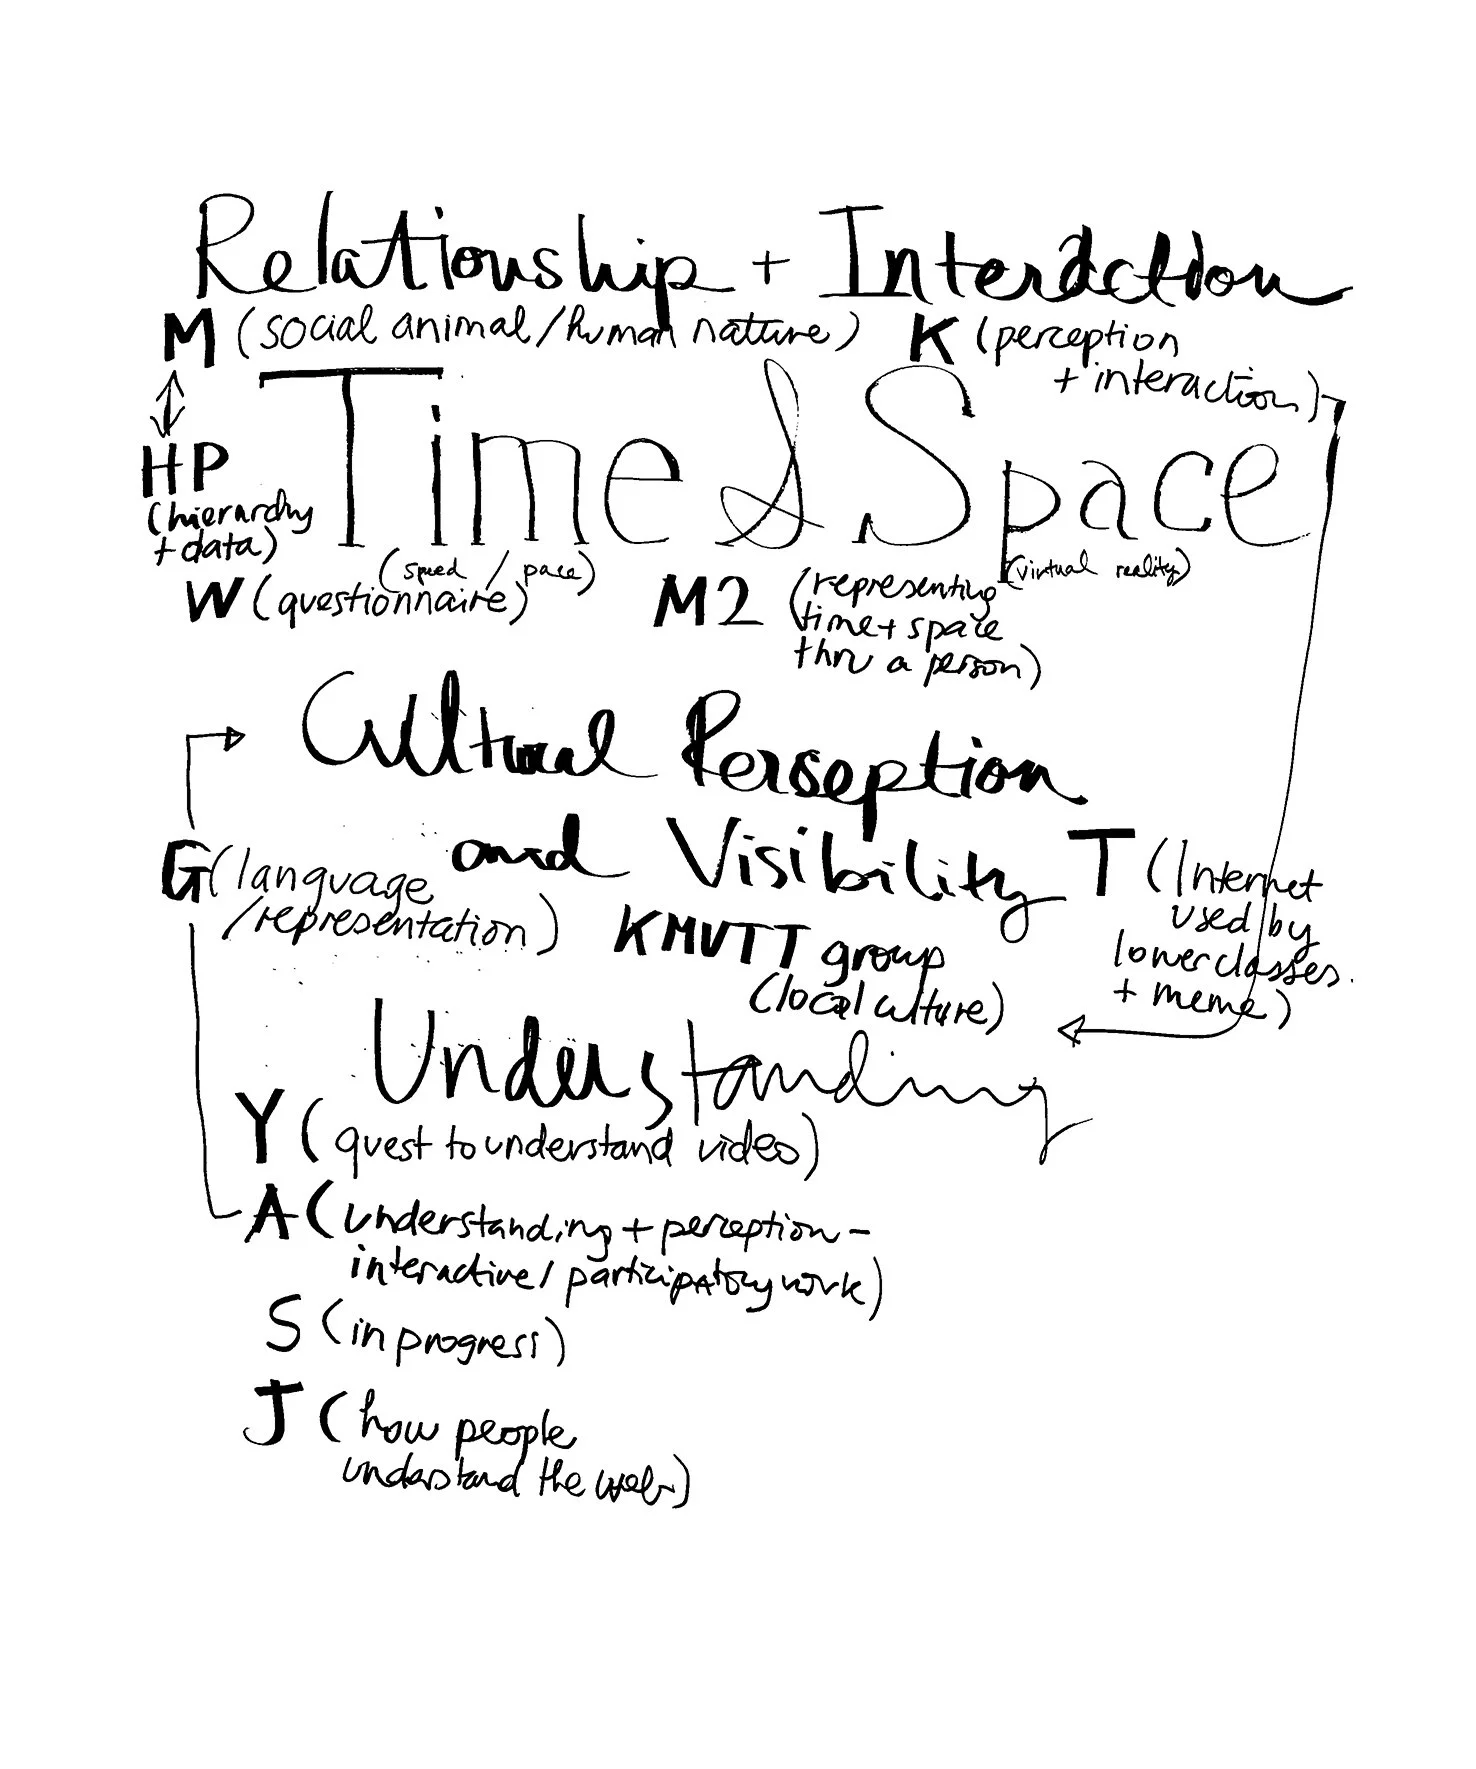 Relationship + Interaction
M (social animal/human nature) K (perception
+ interaction)
HP
(hierarchy
+ data)
Time & Space
(speed / pace) (virtual reality)
W (questionnaire) M2 (representing
time + space
thru a person)
Cultural Perseption
and Visibility
G (language
/representation)
KMUTT group
(local culture)
T (Internet
used by
lowerclasses.
+ meme)
Understanding
Y (quest to understand video)
A (understanding + perception -
interactive/participatory work)
S (in progress)
J (how people
understand the web)